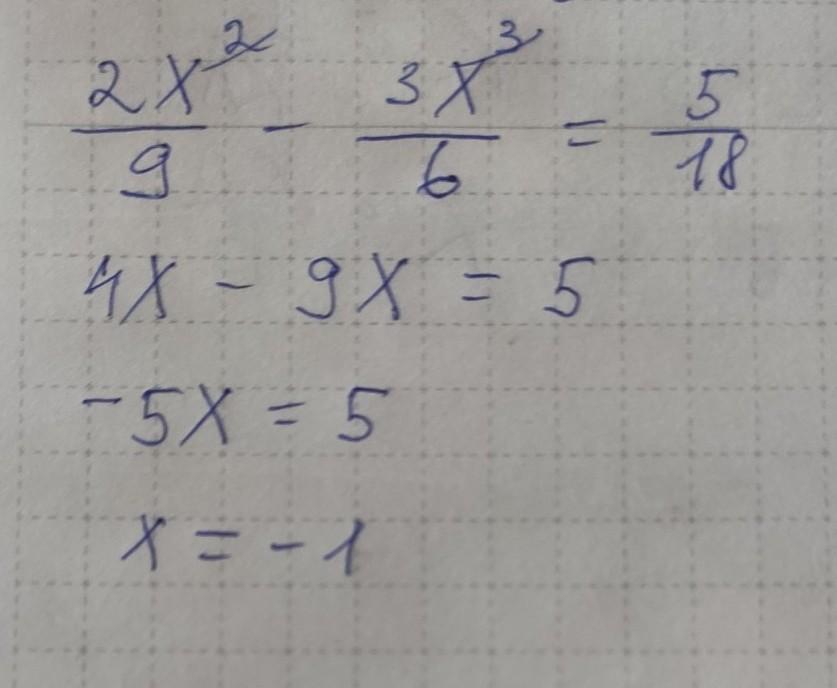 2x/9 ² - 3x/6 ³ = 5/18
4x - 9x = 5
-5x = 5
x = -1